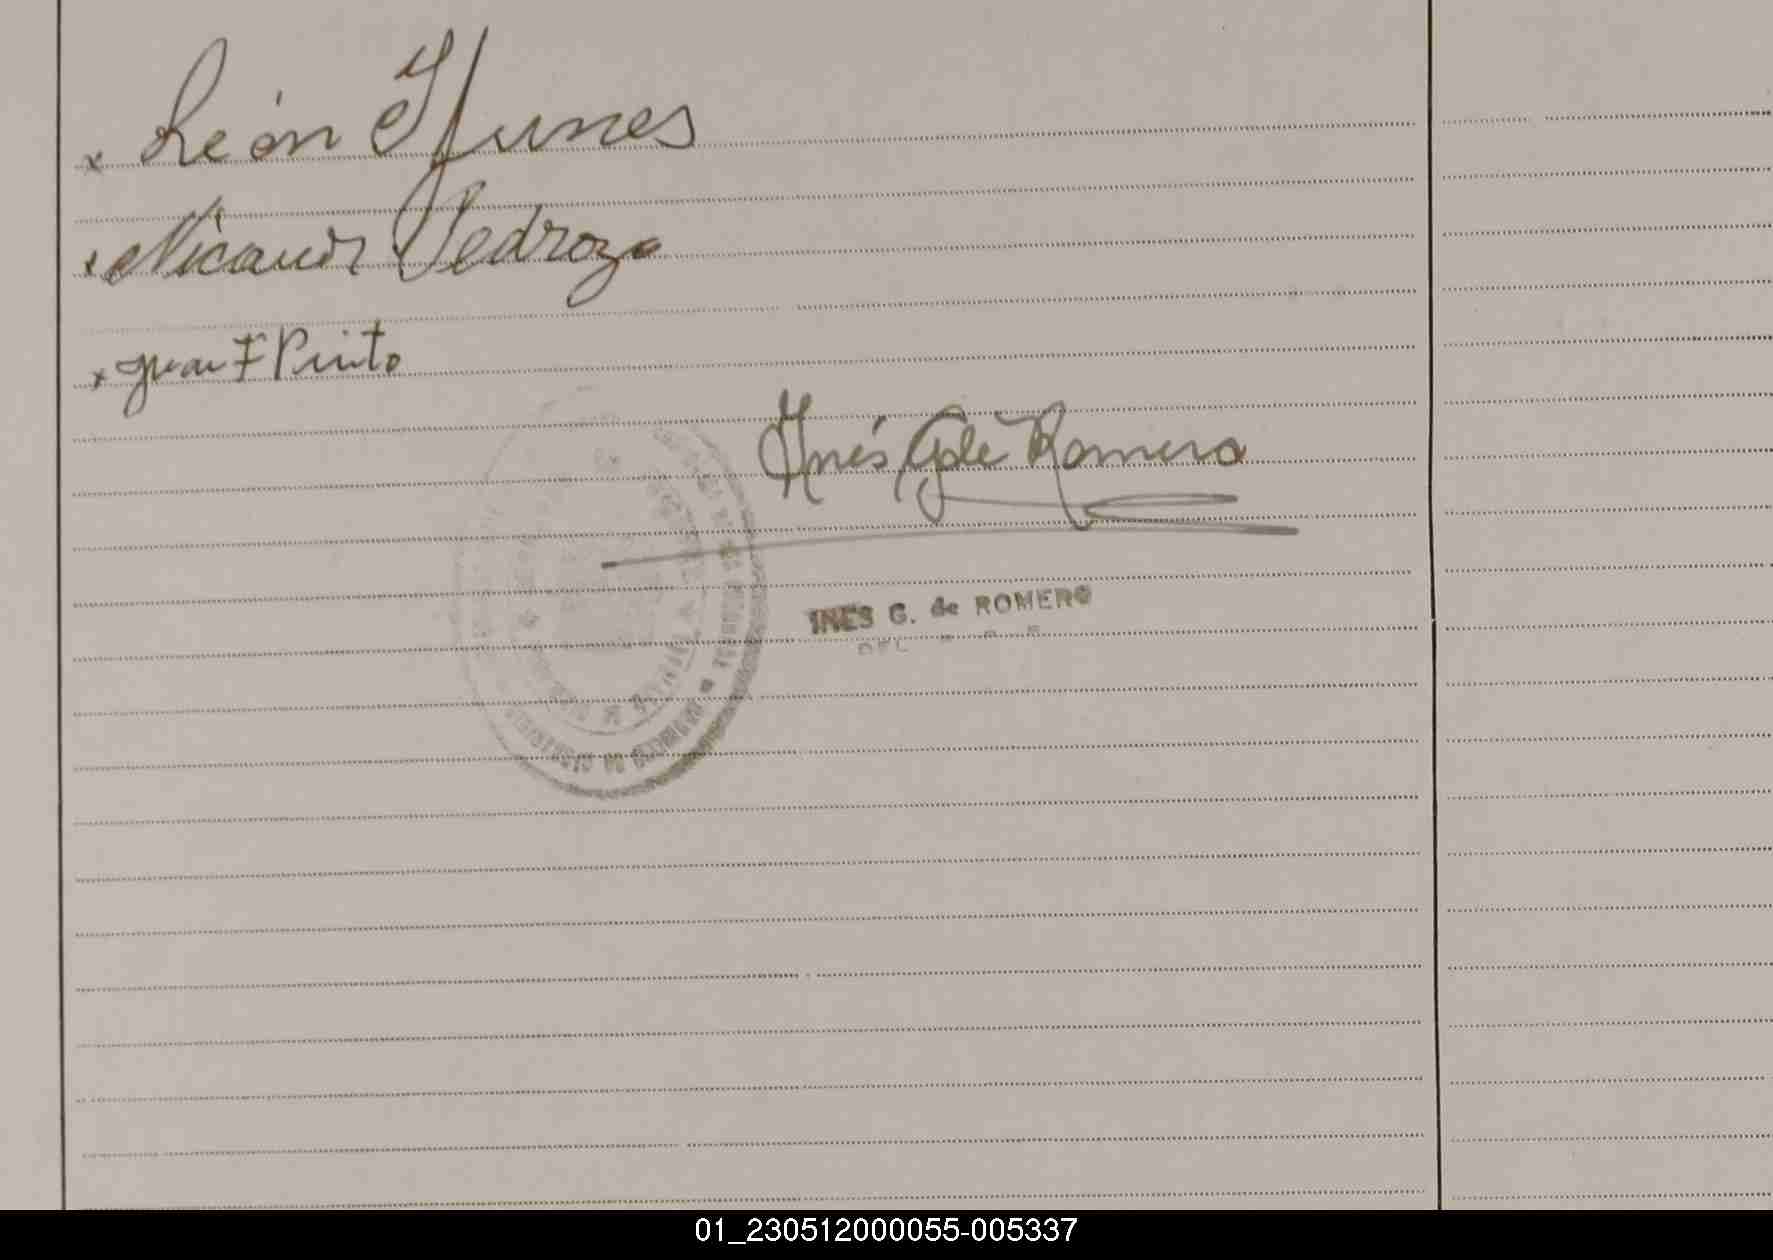 x León Funes
x Nicanor Pedrozo
x Juan F Pinto
Inés G de Romero
INES G. de ROMERO
01_230512000055-005337